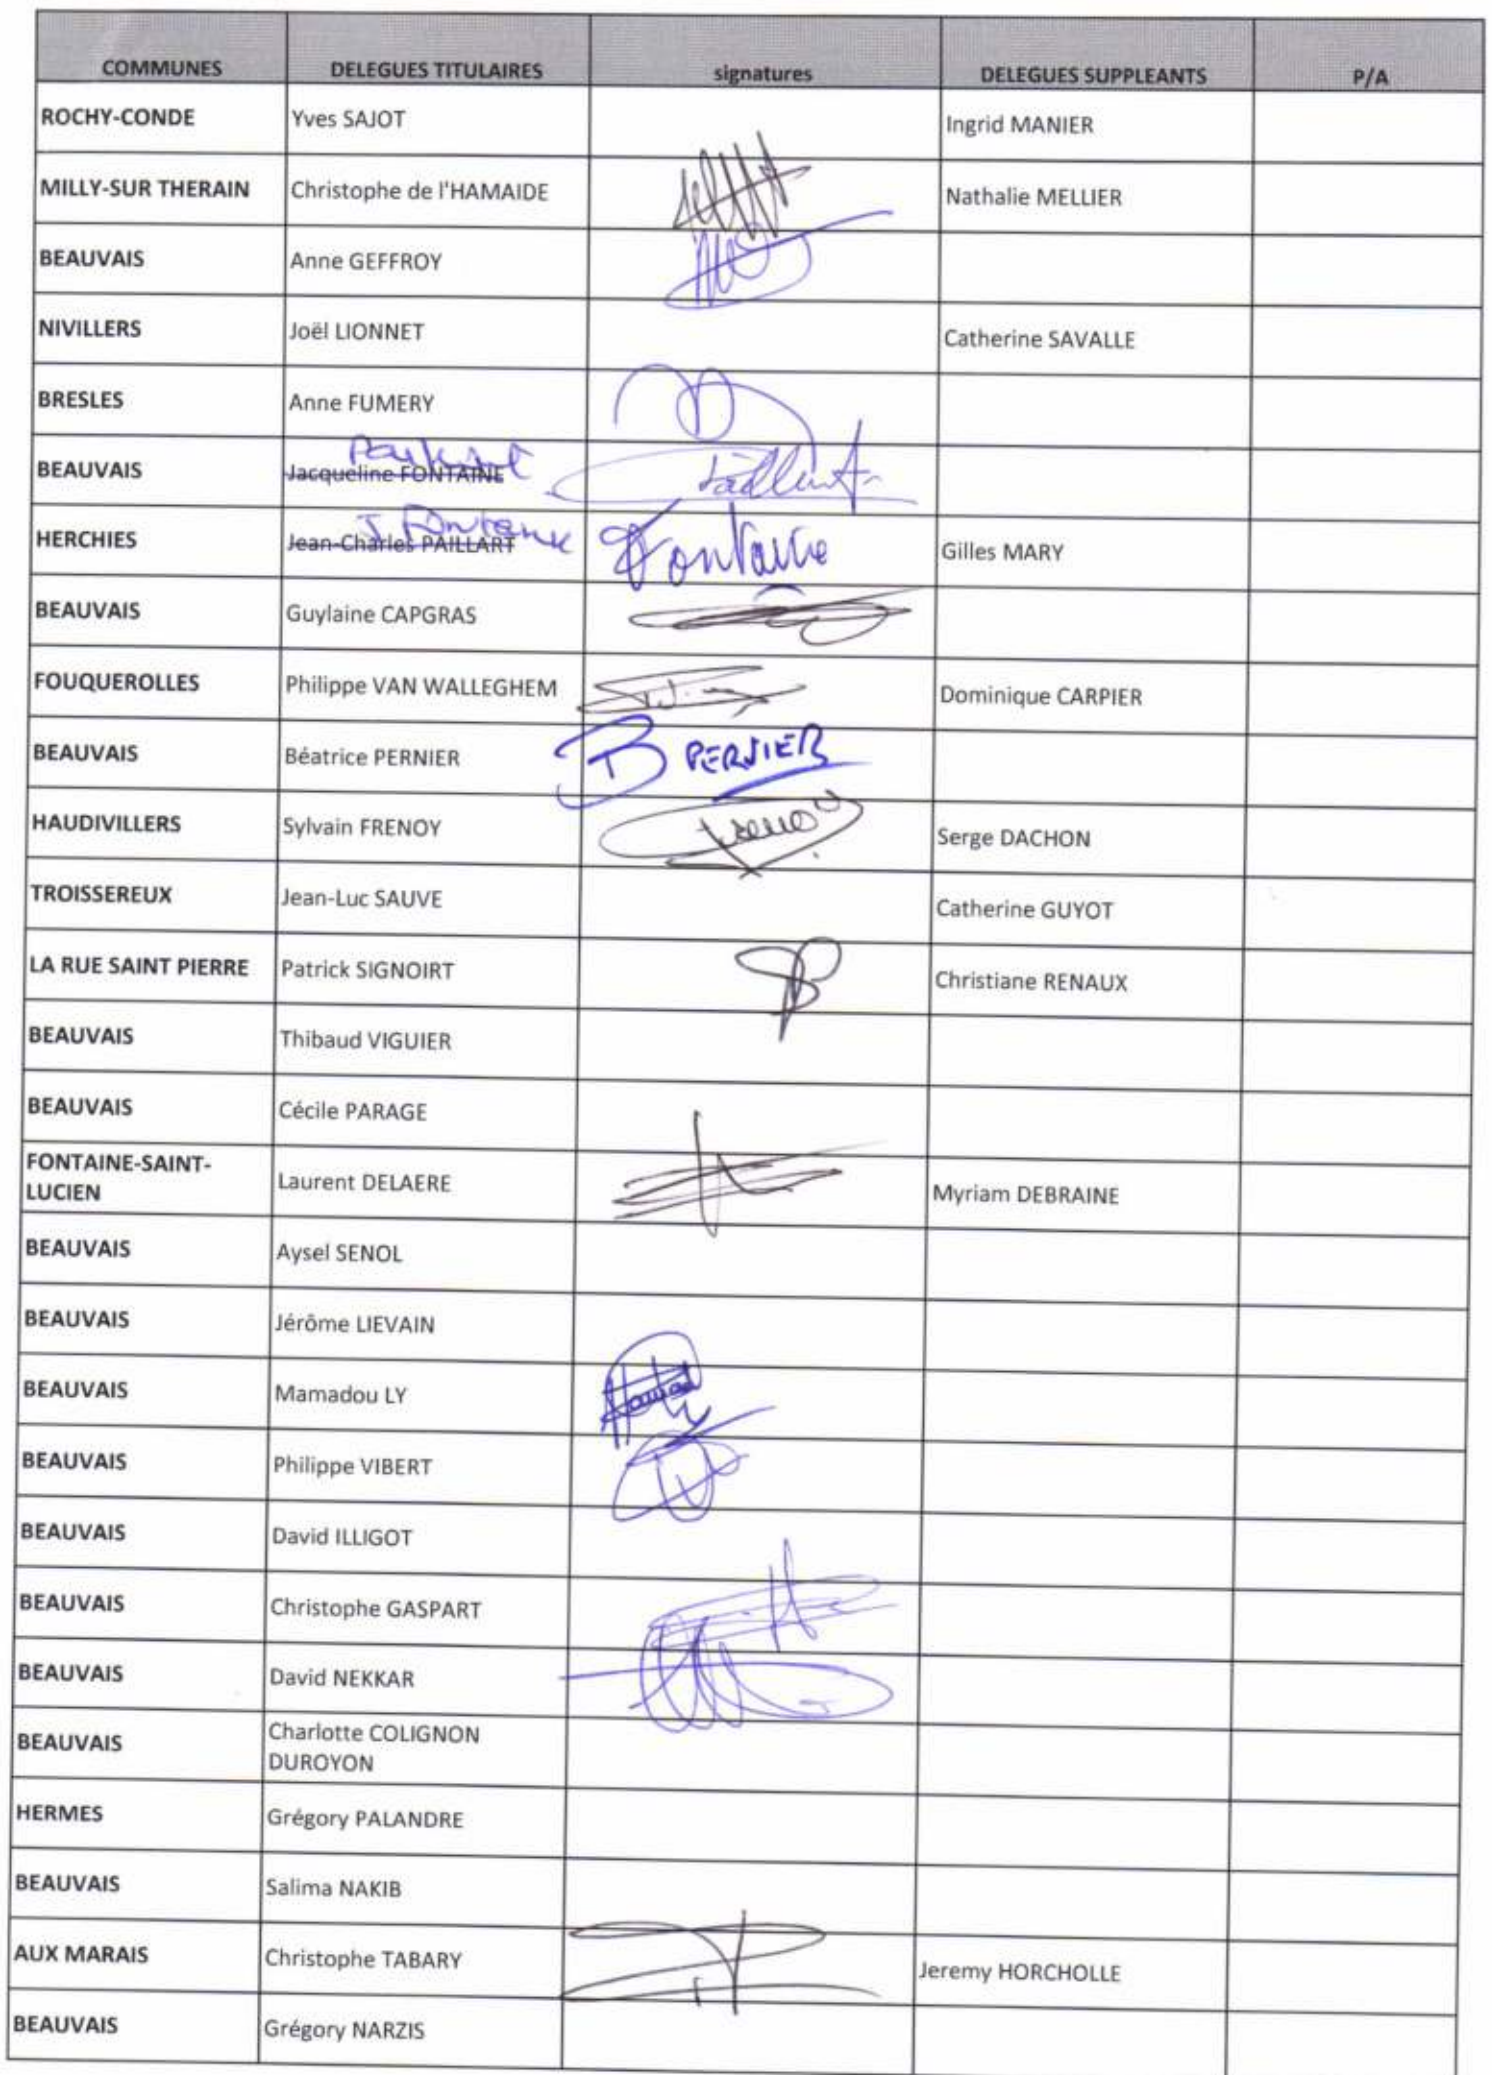 COMMUNES DELEGUES TITULAIRES signatures DELEGUES SUPPLEANTS P/A
ROCHY-CONDE Yves SAJOT Ingrid MANIER
MILLY-SUR THERAIN Christophe de l'HAMAIDE Nathalie MELLIER
BEAUVAIS Anne GEFFROY
NIVILLERS Joël LIONNET Catherine SAVALLE
BRESLES Anne FUMERY
BEAUVAIS Jacqueline FONTAINE
J. Fontaine
HERCHIES Jean-Charles PAILLART Fontaine Gilles MARY
BEAUVAIS Guylaine CAPGRAS
FOUQUEROLLES Philippe VAN WALLEGHEM Dominique CARPIER
BEAUVAIS Béatrice PERNIER B PERNIER
HAUDIVILLERS Sylvain FRENOY Serge DACHON
TROISSEREUX Jean-Luc SAUVE Catherine GUYOT
LA RUE SAINT PIERRE Patrick SIGNOIRT Christiane RENAUX
BEAUVAIS Thibaud VIGUIER
BEAUVAIS Cécile PARAGE
FONTAINE-SAINT-
LUCIEN Laurent DELAERE Myriam DEBRAINE
BEAUVAIS Aysel SENOL
BEAUVAIS Jérôme LIEVAIN
BEAUVAIS Mamadou LY
BEAUVAIS Philippe VIBERT
BEAUVAIS David ILLIGOT
BEAUVAIS Christophe GASPART
BEAUVAIS David NEKKAR
BEAUVAIS Charlotte COLIGNON
DUROYON
HERMES Grégory PALANDRE
BEAUVAIS Salima NAKIB
AUX MARAIS Christophe TABARY Jeremy HORCHOLLE
BEAUVAIS Grégory NARZIS